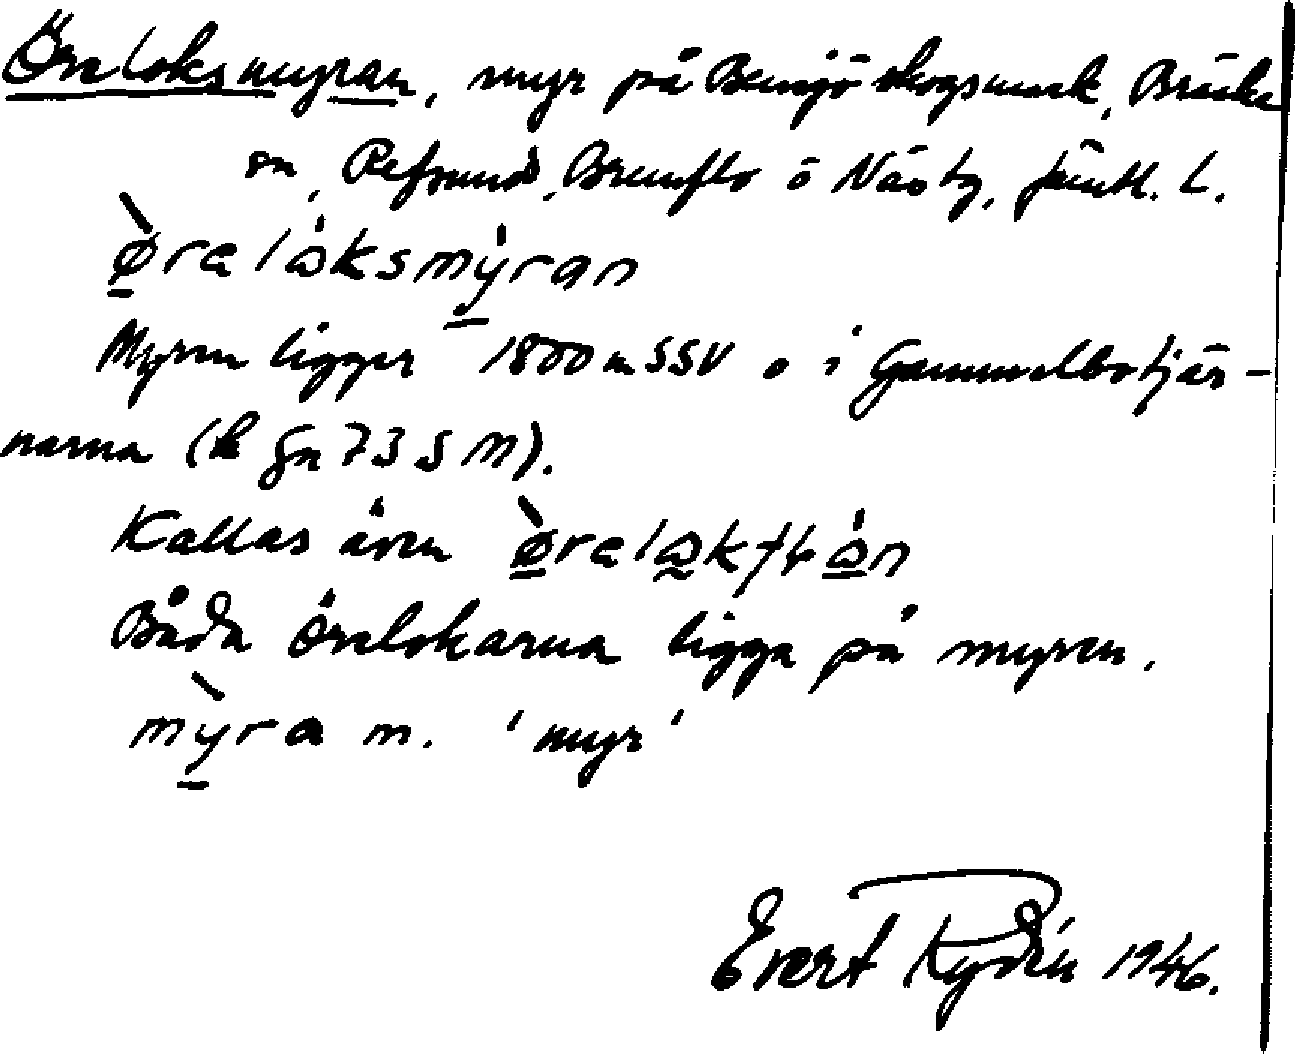 Öreloksmyran, myr på Bensjö skogsmark, Bräcke
sn, Refsund, Brunflo o Näs tg, Jämtl. l.
ø̀relåksmýran
Myren ligger 1800 m SSV o i Gammelbotjär-
narna (k gn 73 S M).
Kallas även ø̀relåkflån
Båda Örelokarna ligga på myren.
mỳra m. 'myr'
Evert Rydén 1946.